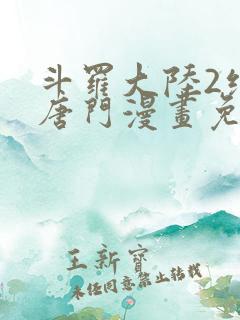 斗羅大陸2
唐門漫畫免
王新寶
未经同意禁止转载